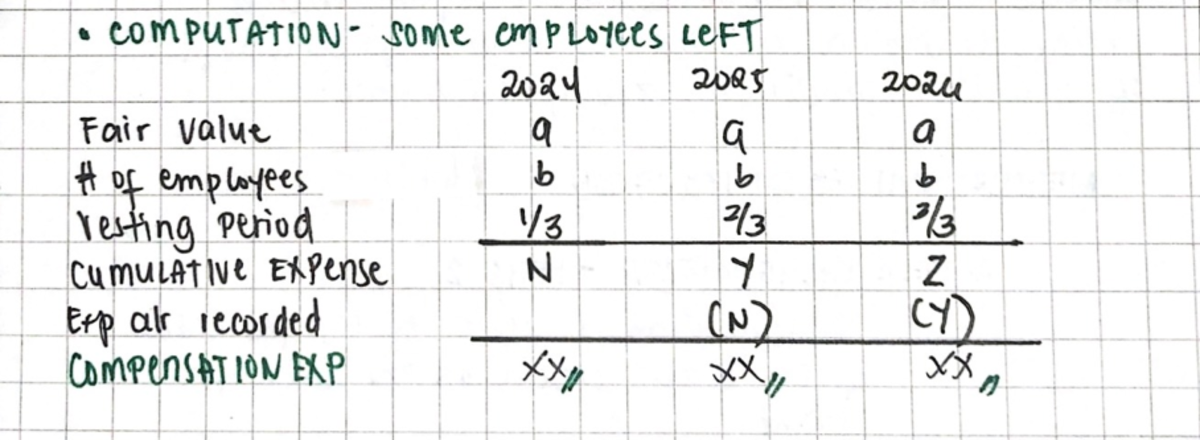 • COMPUTATION - Some employees LEFT
2024 2025 2026
Fair value a a a
# of employees b b b
Vesting period 1/3 2/3 3/3
Cumulative Expense N Y Z
Exp alr recorded (N) (Y)
COMPENSATION EXP XX// XX// XX//